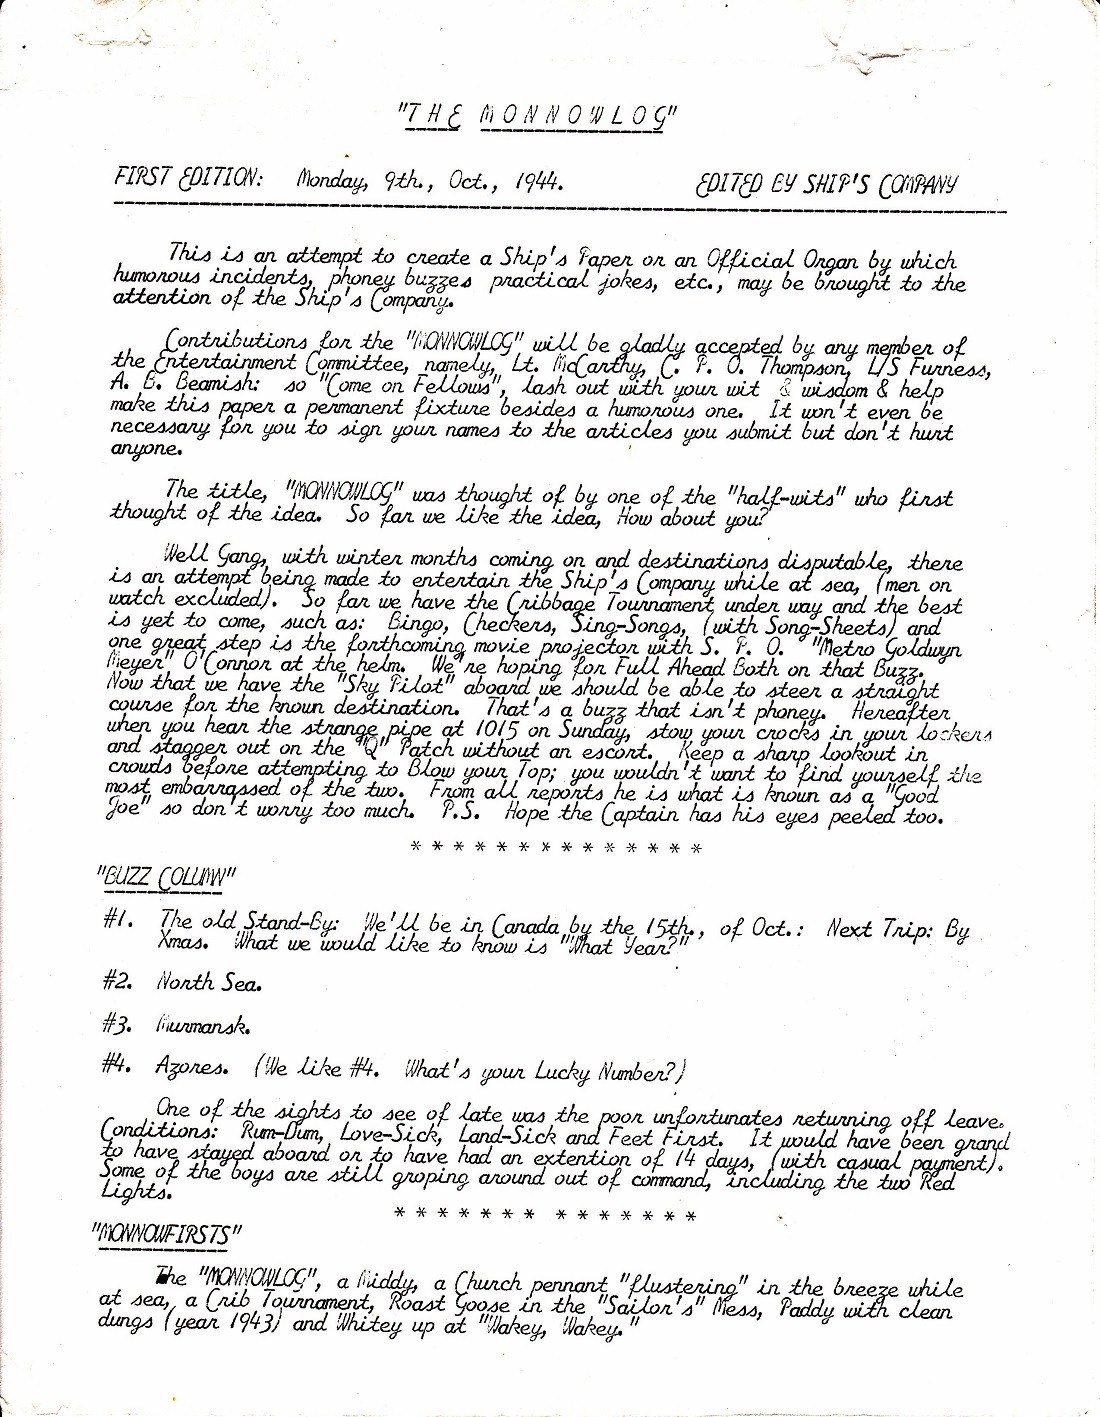 "THE MONNOWLOG"
FIRST EDITION: Monday, 9th., Oct., 1944. EDITED BY SHIP'S COMPANY
This is an attempt to create a Ship's Paper or an Official Organ by which
humorous incidents, phoney buzzes practical jokes, etc., may be brought to the
attention of the Ship's Company.
Contributions for the "MONNOWLOG" will be gladly accepted by any member of
the Entertainment Committee, namely, Lt. McCarthy, C. P. O. Thompson, L/S Furness,
A. B. Beamish: so "Come on Fellows", lash out with your wit & wisdom & help
make this paper a permanent fixture besides a humorous one. It won't even be
necessary for you to sign your names to the articles you submit but don't hurt
anyone.
The title, "MONNOWLOG" was thought of by one of the "half-wits" who first
thought of the idea. So far we like the idea, How about you?
Well Gang, with winter months coming on and destinations disputable, there
is an attempt being made to entertain the Ship's Company while at sea, (men on
watch excluded). So far we have the Cribbage Tournament under way and the best
is yet to come, such as: Bingo, Checkers, Sing-Songs, (with Song-Sheets) and
one great step is the forthcoming movie projector with S. P. O. "Metro Goldwyn
Meyer" O'Connor at the helm. We're hoping for Full Ahead Both on that Buzz.
Now that we have the "Sky Pilot" aboard we should be able to steer a straight
course for the known destination. That's a buzz that isn't phoney. Hereafter
when you hear the strange pipe at 1015 on Sunday, stow your crocks in your lockers
and stagger out on the "Q" Patch without an escort. Keep a sharp lookout in
crowds before attempting to Blow your Top; you wouldn't want to find yourself the
most embarrassed of the two. From all reports he is what is known as a "Good
Joe" so don't worry too much. P.S. Hope the Captain has his eyes peeled too.
* * * * * * * * * * * * * *
"BUZZ COLUMN"
#1. The old Stand-By: We'll be in Canada by the 15th., of Oct.: Next Trip: By
Xmas. What we would like to know is "What Year?"
#2. North Sea.
#3. Murmansk.
#4. Azores. (We like #4. What's your Lucky Number?)
One of the sights to see of late was the poor unfortunates returning off leave.
Conditions: Rum-Dum, Love-Sick, Land-Sick and Feet First. It would have been grand
to have stayed aboard or to have had an extention of 14 days, (with casual payment).
Some of the boys are still groping around out of command, including the two Red
Lights.
* * * * * * * * * * * * * *
"MONNOWFIRSTS"
The "MONNOWLOG", a Middy, a Church pennant "flustering" in the breeze while
at sea, a Crib Tournament, Roast Goose in the "Sailor's" Mess, Paddy with clean
dungs (year 1943) and Whitey up at "Wakey, Wakey."